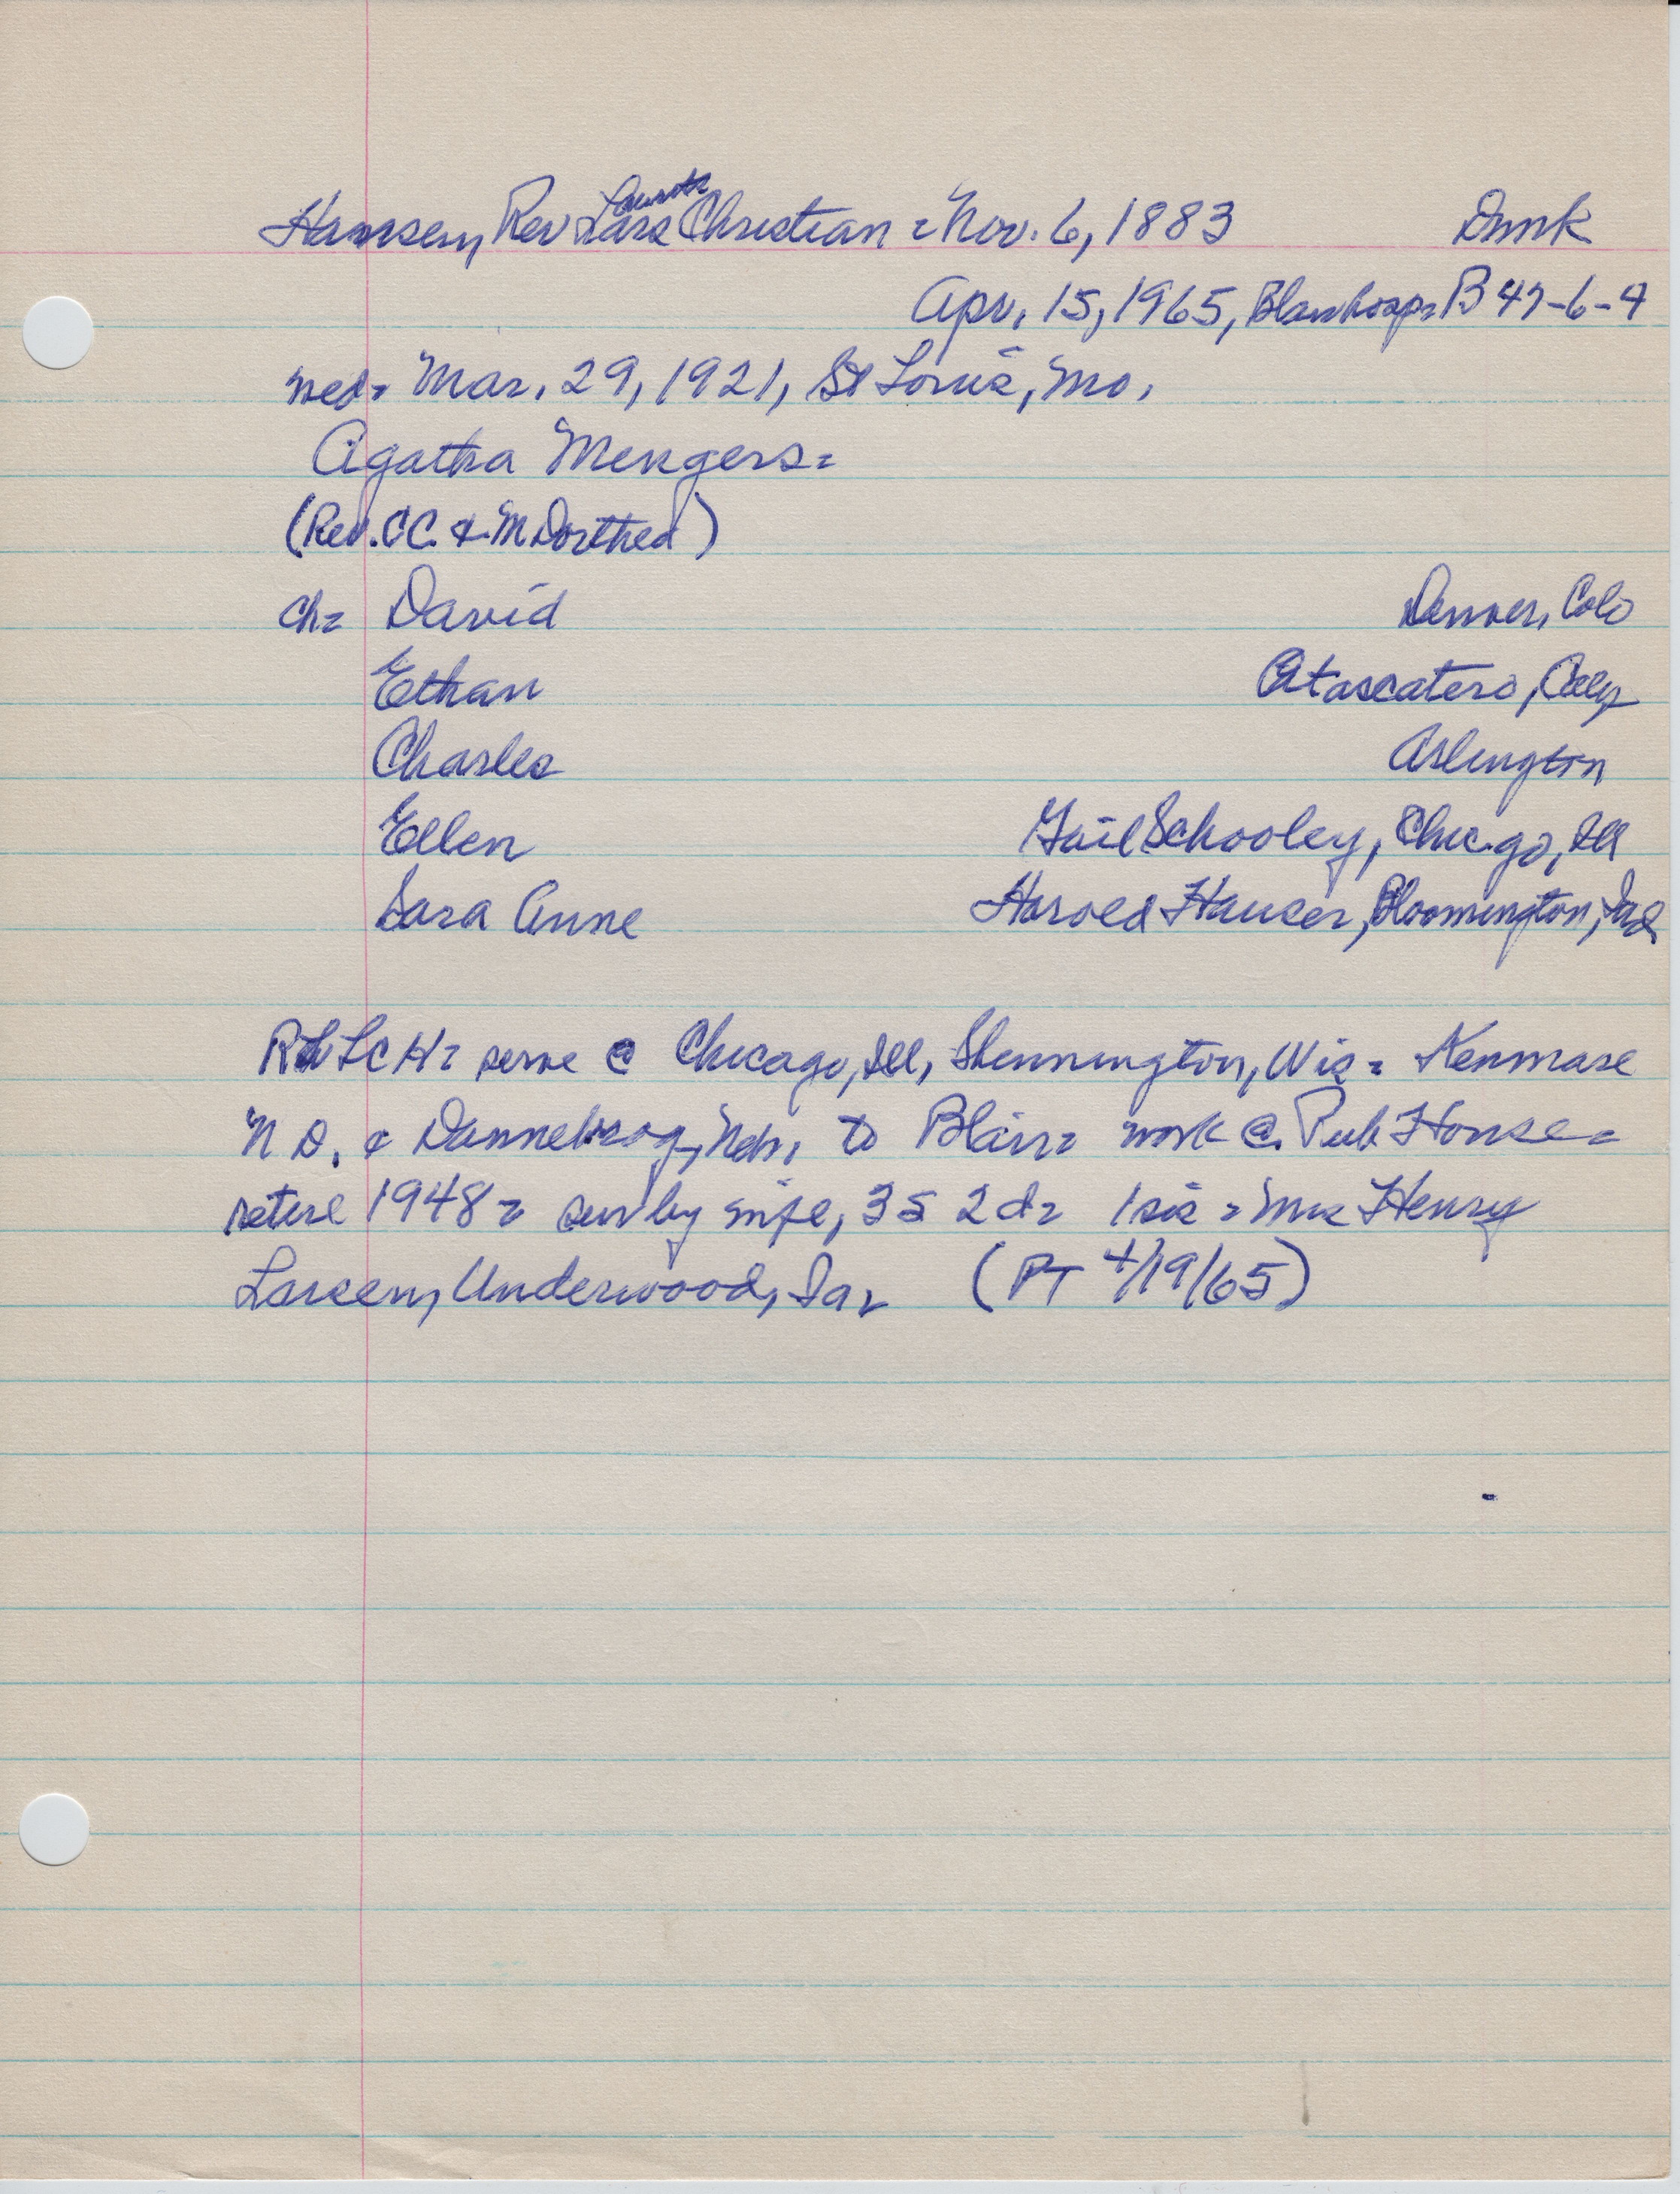 Hansen, Rev Lars Laurith Christian = Nov. 6, 1883 Dmk
Apr. 15, 1965, Blair hosp = B 47-6-4
wed = Mar. 29, 1921, St Louis, Mo.
Agatha Mengers =
(Rev. CC. & M Dorthea)
ch = David Denver, Colo
Ethan Atascatero, Calif
Charles Arlington
Ellen Gail Schooley, Chicago, Ill
Sara Anne Harold Hauser, Bloomington, Ind
LCH = serve @ Chicago, Ill, Shennington, Wis = Kenmare
N D. & Dannebrog, Neb, to Blair = work @ Pub House =
retire 1948 = sur by wife, 3 s 2 d = 1 sis = Mrs Henry
Larsen, Underwood, Ia = (PT 4/19/65)